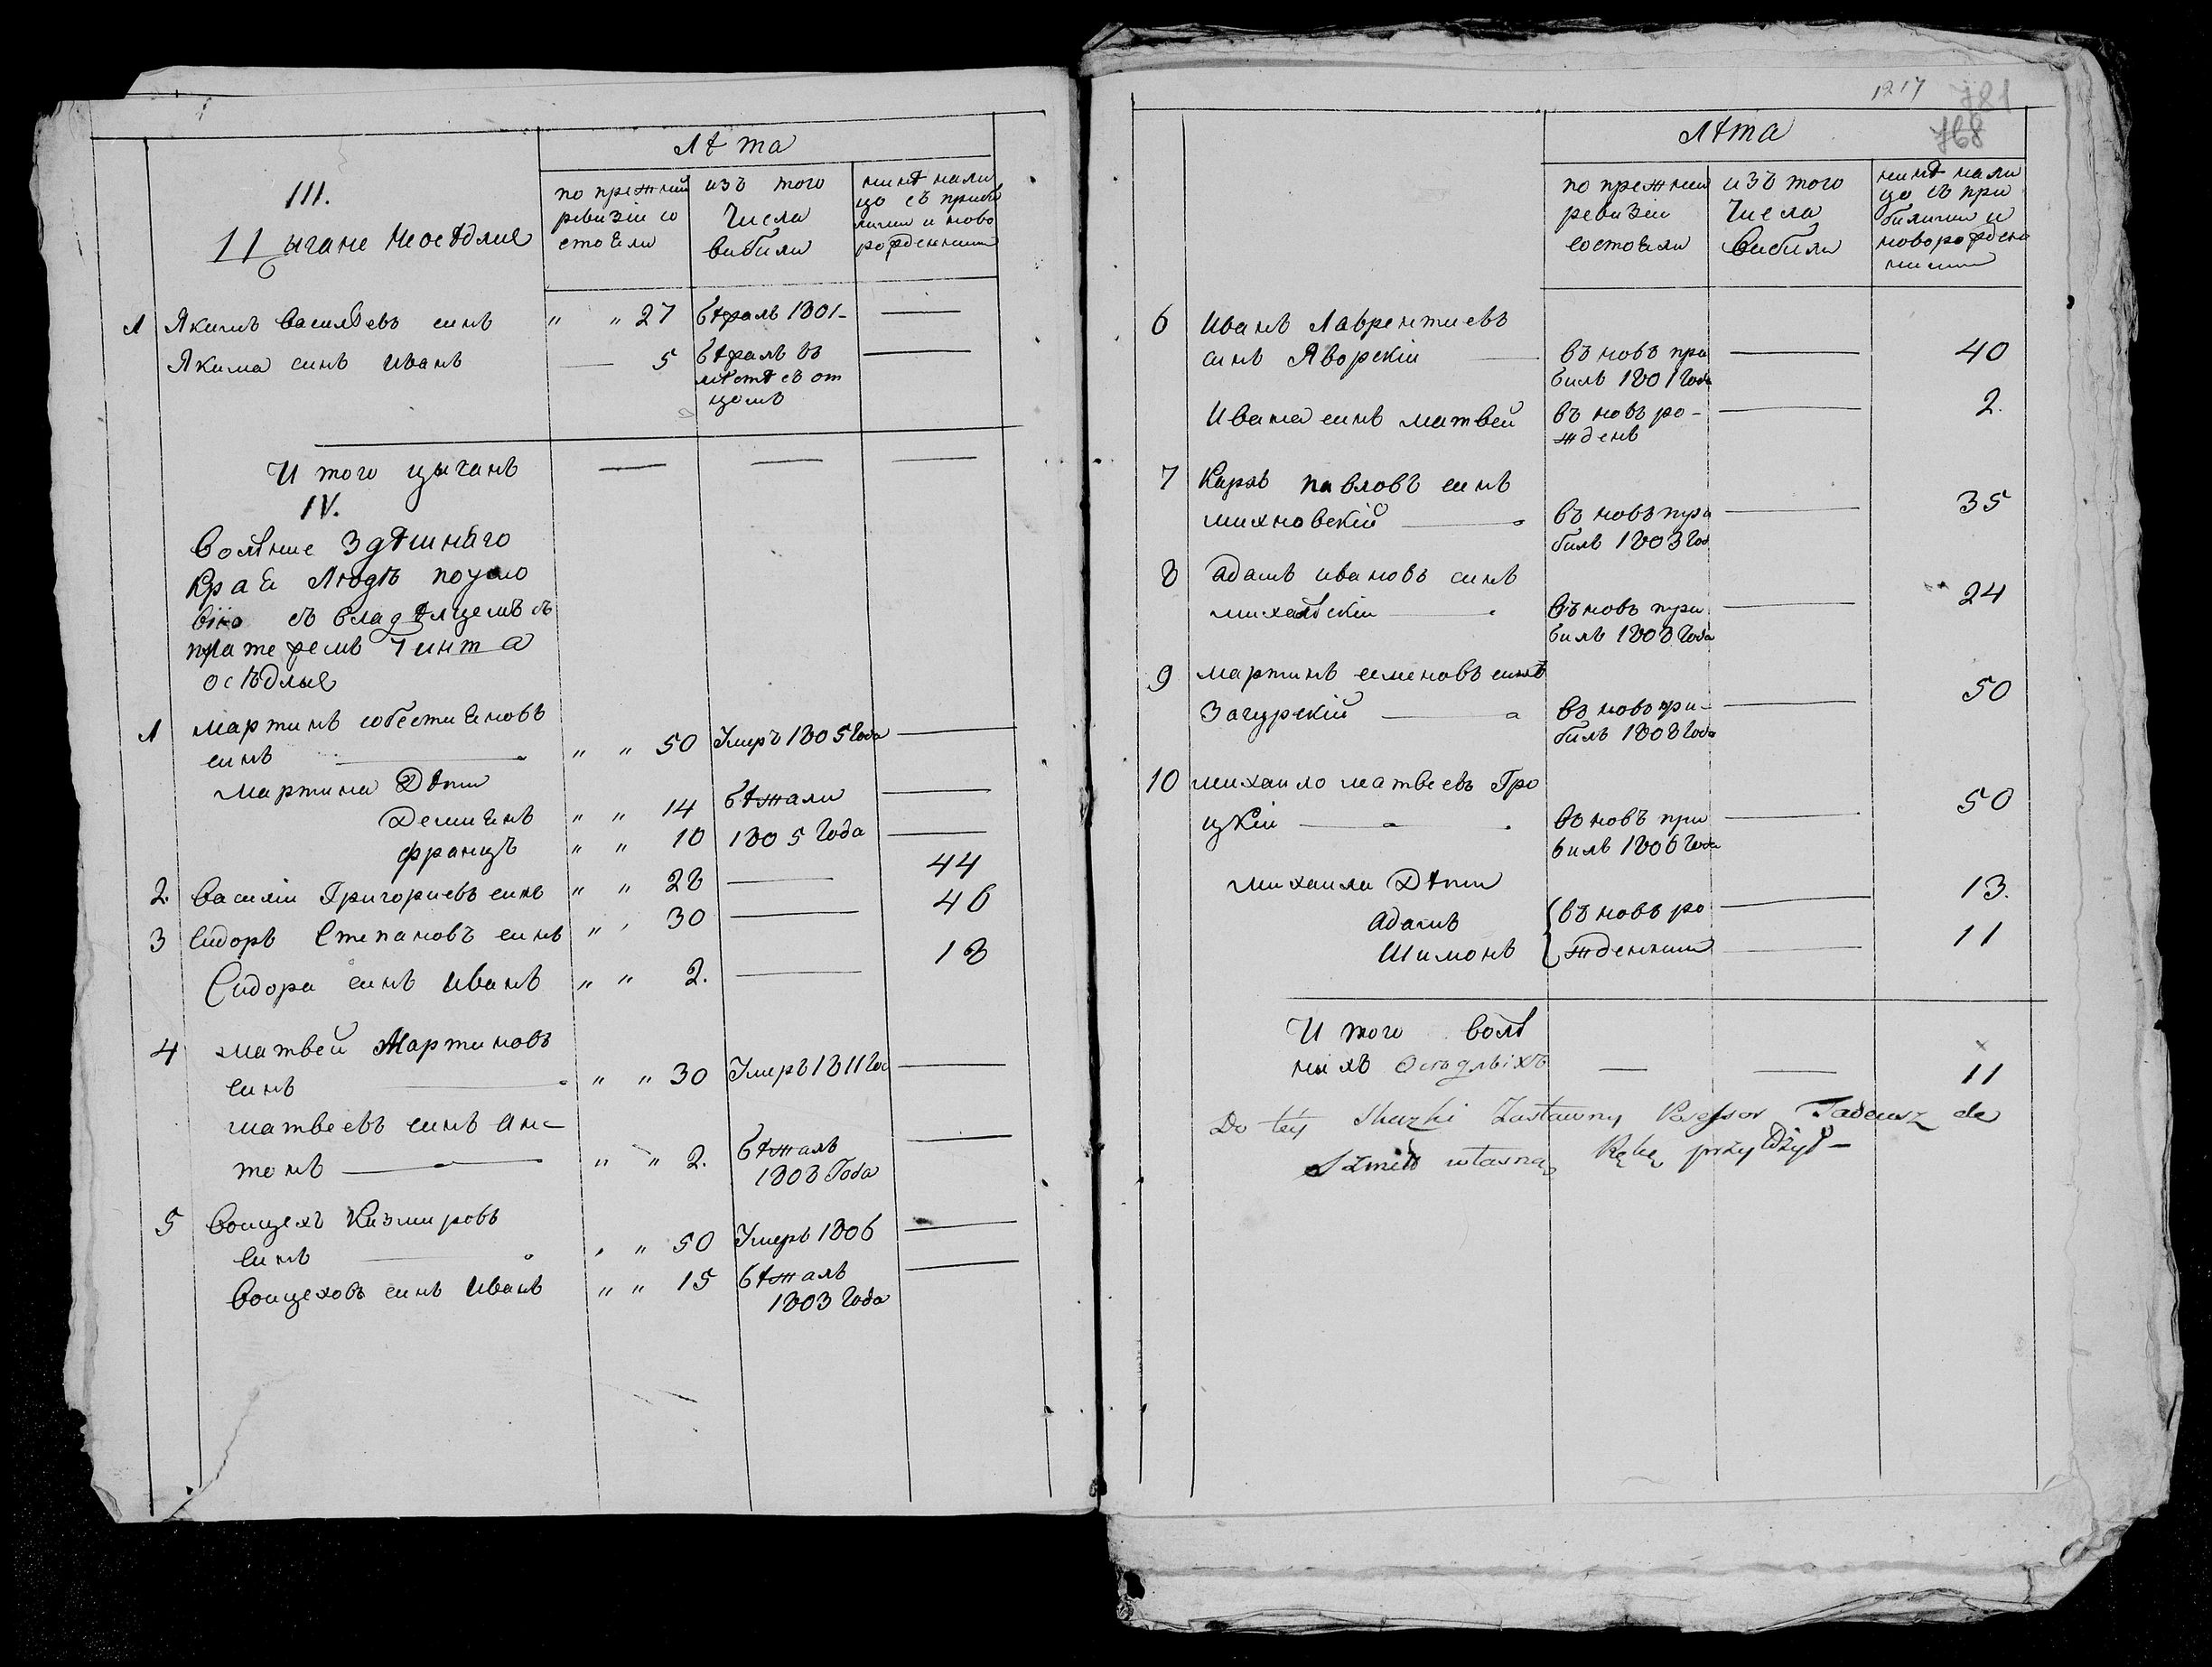 Лѣта
III.
Цыгане Неосѣдлие
по прежний
ревизіи со
стоѣли
изъ того
Числа
вибили
нинѣ нали
цо съ приби
лими и ново
рожденними
1 Якимъ васильевъ синъ " " 27 бѣжалъ 1801 —
Якима синъ иванъ — 5 бѣжалъ въ —
мѣстѣ съ от
цомъ
И того цыганъ — — —
IV.
вольние Здѣшнаго
Краѣ Людѣ поусло
вію съ владѣлцемъ съ
платежемъ Чинта
осѣдлые
1 мартинъ собестиѣновъ
синъ — " " 50 Умеръ 1805 Года —
мартина Дѣти
Демиѣнъ " " 14 бѣжали —
францъ " " 10 1805 Года —
2. василіи Григориевъ синъ " " 28 — 44
3 Сидоръ Степановъ синъ " " 30 — 46
Сидора синъ иванъ " " 2. — 18
4 матвей Мартиновъ
синъ — " " 30 Умеръ 1811 Го —
матвеевъ синъ ан-
тонъ — " " 2. бѣжалъ —
1808 Года
5 воицехъ Казмировъ
синъ — " " 50 Умеръ 1806 —
воицеховъ синъ иванъ " " 15 бѣжалъ —
1803 Года
1217
781
768
Лѣта
по прежнии
ревизіи
состоѣли
изъ того
Числа
вибили
нинѣ нали
цо съ при
билими и
новорожден
ними
6 иванъ Лаврентиевъ
синъ Яворскіи — въ новъ при — 40
билъ 1801 Года
ивана синъ матвей въ новъ ро- — 2.
жденъ
7 Карлъ павловъ синъ
михновскій — въ новъ при — 35
билъ 1803 Год
8 адамъ ивановъ синъ
михальскіи — въ новъ при — 24
билъ 1808 Года
9 мартинъ семеновъ синъ
Загурскій — въ новъ при- — 50
билъ 1808 Года
10 михаило матвеевъ Гро
цкіи — въ новъ при — 50
билъ 1806 Года
михаила Дѣти
адамъ въ новъ ро — 13.
Шимонъ жденнии — 11
И того воль
нихъ Осѣдлыхъ — — 11
Do tey Skazki Zastawny Posessor Tadeusz de
własną Rękę